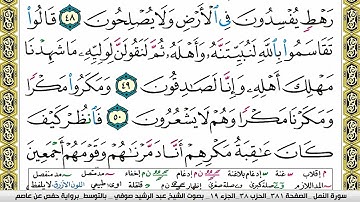 رَهْطٍ يُفْسِدُونَ فِي ٱلْأَرْضِ وَلَا يُصْلِحُونَ ٤٨ قَالُوا۟
تَقَاسَمُوا۟ بِٱللَّهِ لَنُبَيِّتَنَّهُۥ وَأَهْلَهُۥ ثُمَّ لَنَقُولَنَّ لِوَلِيِّهِۦ مَا شَهِدْنَا
مَهْلِكَ أَهْلِهِۦ وَإِنَّا لَصَٰدِقُونَ ٤٩ وَمَكَرُوا۟ مَكْرًا
وَمَكَرْنَا مَكْرًا وَهُمْ لَا يَشْعُرُونَ ٥٠ فَٱنظُرْ كَيْفَ
كَانَ عَٰقِبَةُ مَكْرِهِمْ أَنَّا دَمَّرْنَٰهُمْ وَقَوْمَهُمْ أَجْمَعِينَ
سورة النمل الصفحة ٣٨١ الحزب ٣٨ الجزء ١٩ بصوت الشيخ عبد الرشيد صوفي بالتوسط برواية حفص عن عاصم